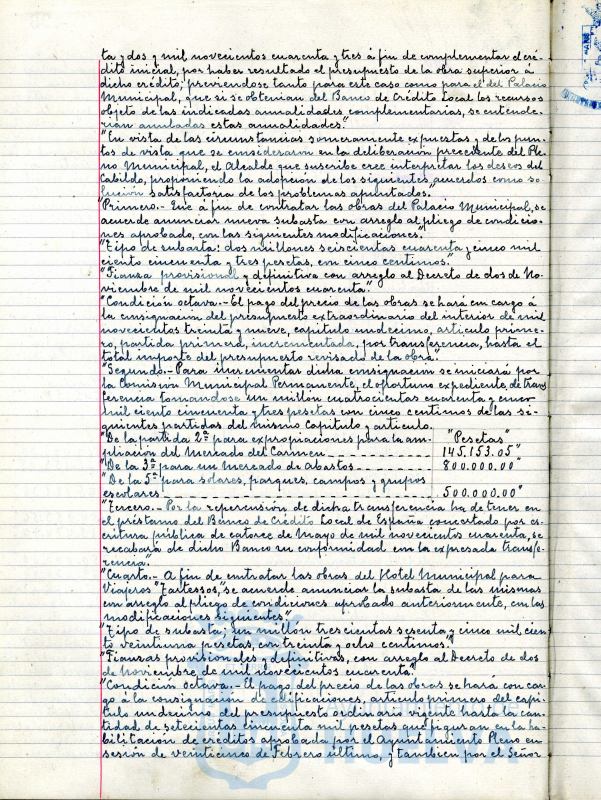 ta y dos y mil novecientos cuarenta y tres á fin de complementar el cré-
dito inicial, por haber resultado el presupuesto de la obra superior á
dicho crédito, previendose tanto para este caso como para el del Palacio
Municipal, que si se obtenian del Banco de Crédito Local los recursos
objeto de las indicadas anualidades complementarias, se entende-
rian anuladas estas anualidades."
"En vista de las circunstancias someramente expuestas y de los pun-
tos de vista que se consideraron en la deliberación precedente del Ple-
no Municipal, el Alcalde que suscribe cree interpretar los deseos del
Cabildo, proponiendo la adopción de los siguientes acuerdos como so-
lución satisfactoria de los problemas apuntados."
"Primero.- Que á fin de contratar las obras del Palacio Municipal, se
acuerde anunciar nueva subasta con arreglo al pliego de condicio-
nes aprobado, con las siguientes modificaciones."
"Tipo de subasta: dos millones seiscientas cuarenta y cinco mil
ciento cincuenta y tres pesetas, con cinco centimos."
"Fianza provisional y definitiva con arreglo al Decreto de dos de No-
viembre de mil novecientos cuarenta."
"Condición octava.- El pago del precio de las obras se hará con cargo á
la consignación del presupuesto extraordinario del interior de mil
novecientos treinta y nueve, capitulo undecimo, articulo prime-
ro, partida primera, incrementada, por transferencia, hasta el
total importe del presupuesto revisado de la obra."
"Segundo.- Para incrementar dicha consignación se iniciará por
la Comisión Municipal Permanente, el oportuno expediente de trans
ferencia tomandose un millón cuatrocientas cuarenta y cinco
mil ciento cincuenta y tres pesetas con cinco centimos de las si-
guientes partidas del mismo Capitulo y articulo.
"De la partida 2ª para expropiaciones para la am- "Pesetas"
pliación del Mercado del Carmen 145.153.05"
"De la 3ª para un Mercado de Abastos 800.000.00"
"De la 5ª para solares, parques, campos y grupos
escolares 500.000.00"
"Tercero.- Por la repercusión de dicha transferencia ha de tener en
el préstamo del Banco de Crédito Local de España concertado por es-
critura pública de catorce de Mayo de mil novecientos cuarenta, se
recabará de dicho Banco su conformidad con la expresada transfe-
rencia."
"Cuarto.- A fin de contratar las obras del Hotel Municipal para
Viajeros "Tartessos", se acuerde anunciar la subasta de las mismas
con arreglo al pliego de condiciones aprobado anteriormente, con las
modificaciones siguientes"
"Tipo de subasta; un millón trescientas sesenta y cinco mil cien
to veintiuna pesetas, con treinta y ocho centimos."
"Fianzas provisionales y definitivas, con arreglo al Decreto de dos
de Noviembre de mil novecientos cuarenta."
"Condición octava.- El pago del precio de las obras se hará con car-
go á la consignación de edificaciones, articulo primero del capi-
tulo undecimo del presupuesto ordinario vigente hasta la can-
tidad de setecientas cincuenta mil pesetas que figuran en la ha-
bilitación de créditos aprobada por el Ayuntamiento Pleno en
sesión de veinticinco de Febrero último, y tambien por el Señor